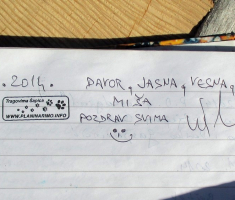 .2014. DAVOR, JASNA, VESNA,
MIŠA
Tragovima Šapica
WWW.PLANINARIMO.INFO
POZDRAV SVIMA